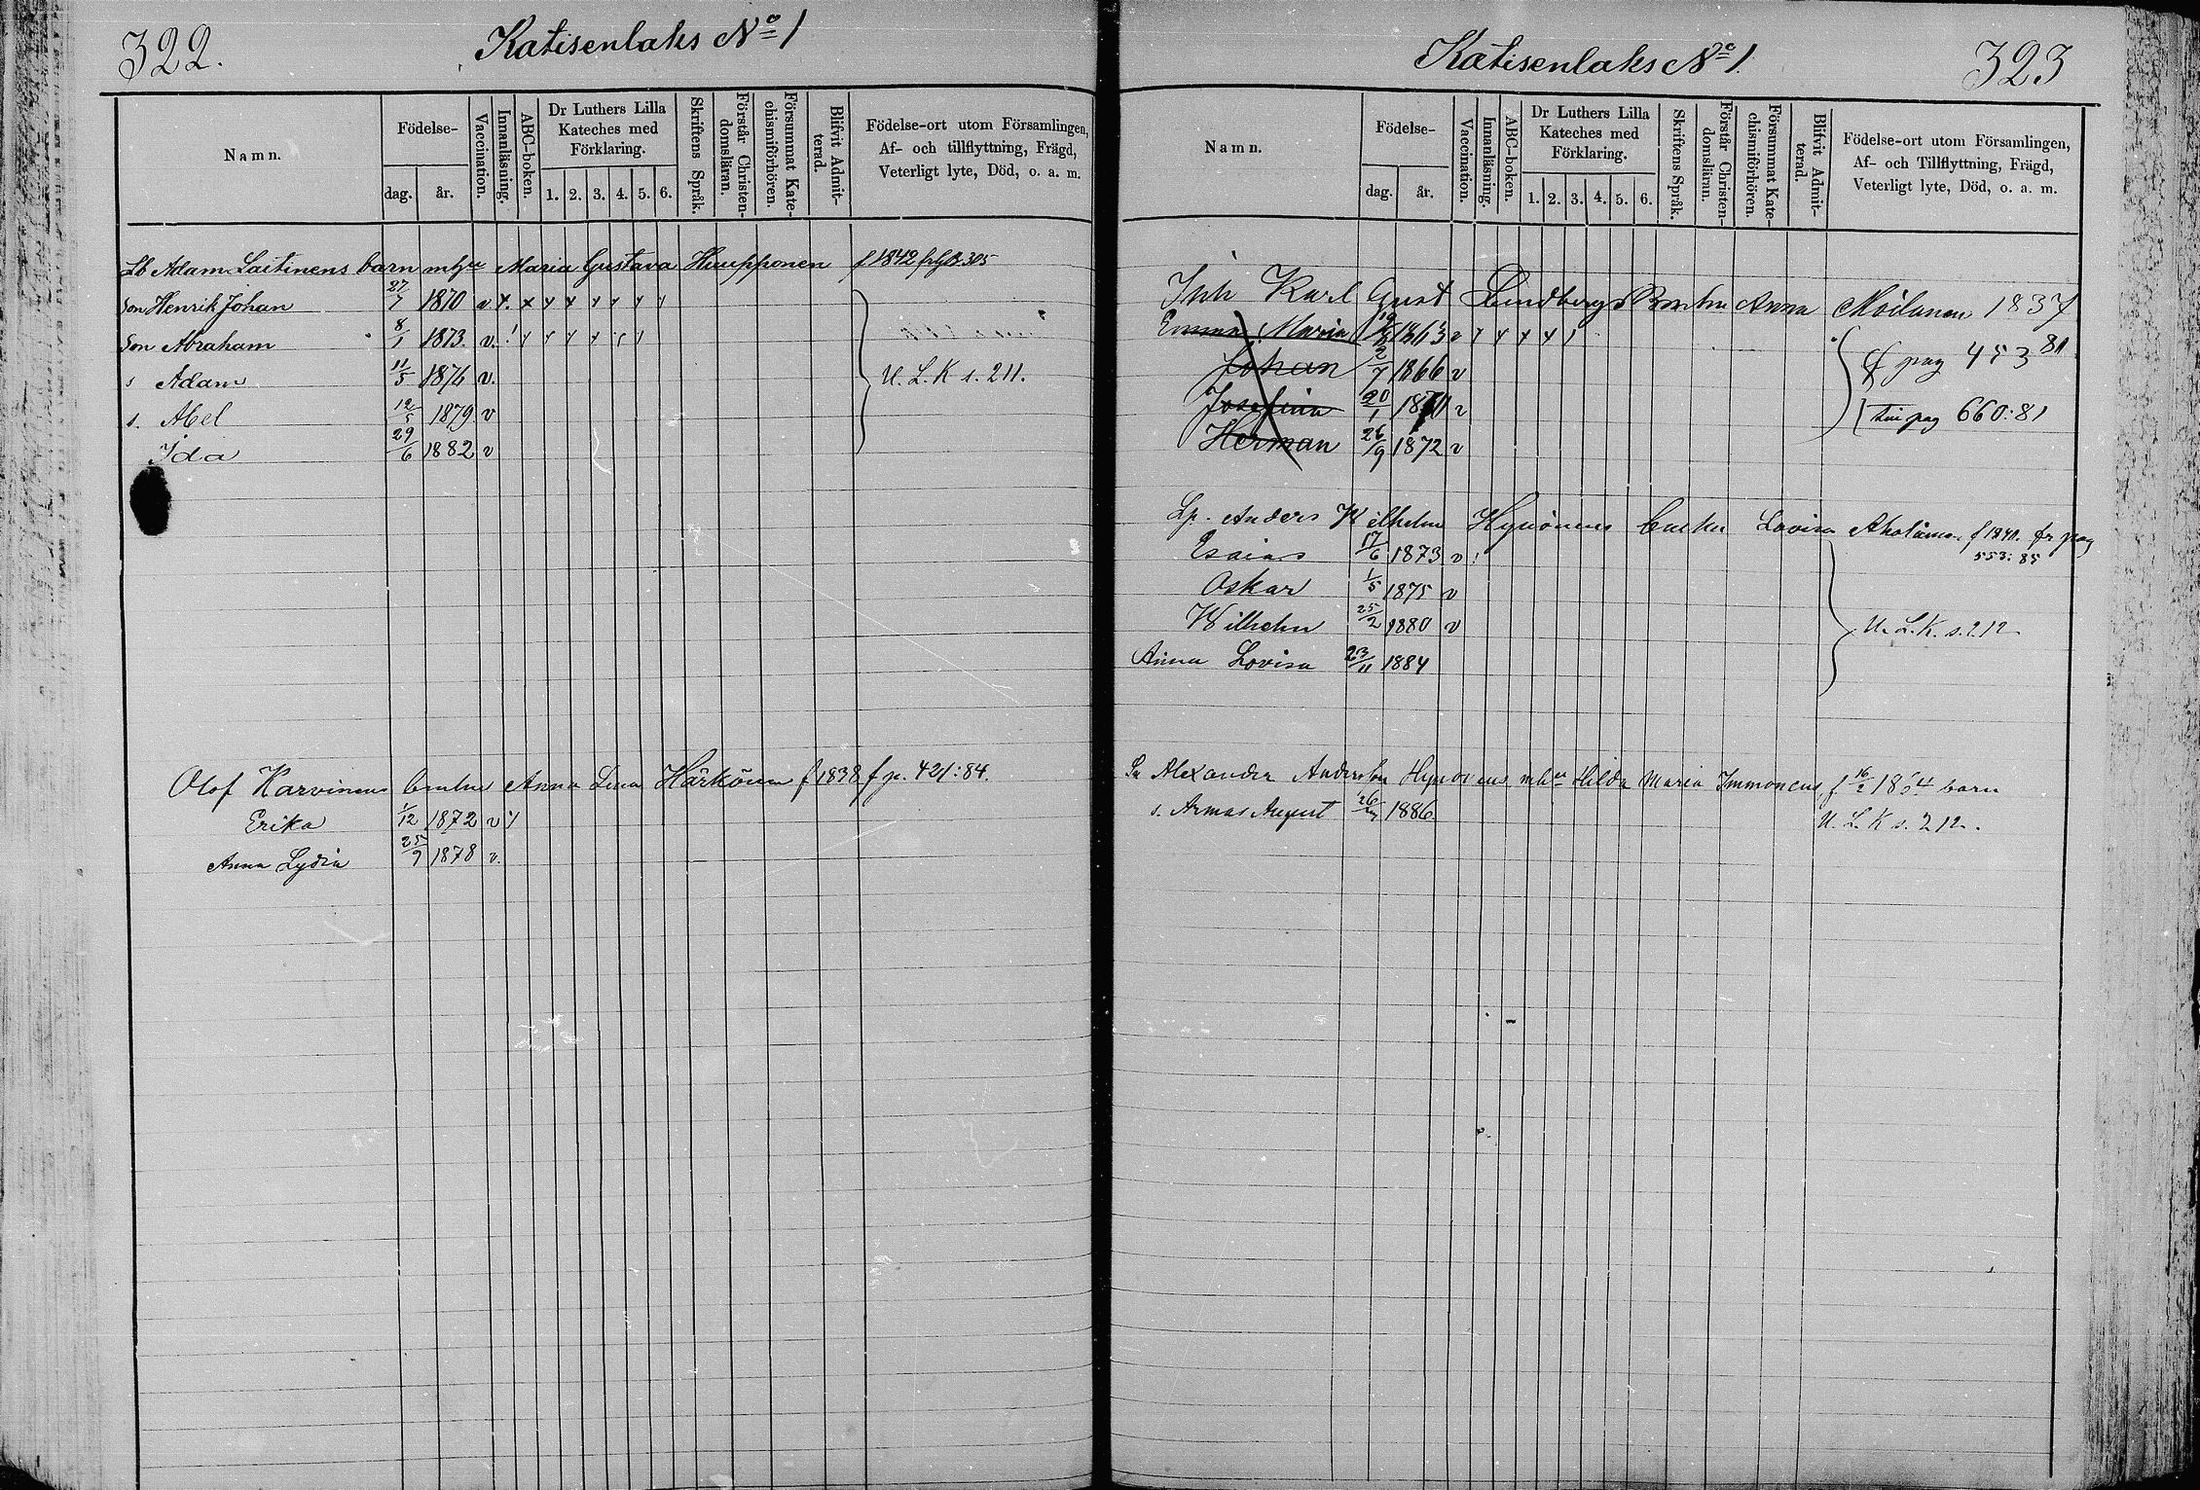 322.
Katisenlaks No 1
Namn.
Födelse-
dag.
år.
Vaccination.
Innanläsning.
ABC-boken.
Dr Luthers Lilla
Kateches med
Förklaring.
1. 2. 3. 4. 5. 6.
Skriftens Språk.
Förstår Christen-
domsläran.
Försummat Kate-
chismiförhören.
Blifvit Admit-
terad.
Födelse-ort utom Församlingen,
Af- och tillflyttning, Frägd,
Veterligt lyte, Död, o. a. m.
Lb Adam Laitinens barn Maria Gustava Huupponen f 1842
Son Henrik Johan 27/7 1870 v x x x x
Son Abraham 8/1 1873. v.
s Adam 11/5 1876 v. U. L. K s. 211.
s. Abel 12/5 1879 v
Ida 29/6 1882 v
Olof Karvinens Anna Lena Härkönen f 1838 f p. 421:84.
Erika 1/12 1872 v
Anna Lydia 25/9 1878 v.
Katisenlaks No 1.
323
Namn.
Födelse-
dag.
år.
Vaccination.
Innanläsning.
ABC-boken.
Dr Luthers Lilla
Kateches med
Förklaring.
1. 2. 3. 4. 5. 6.
Skriftens Språk.
Förstår Christen-
domsläran.
Försummat Kate-
chismiförhören.
Blifvit Admit-
terad.
Födelse-ort utom Församlingen,
Af- och Tillflyttning, Frägd,
Veterligt lyte, Död, o. a. m.
Inh Karl Gust Lindbergs Anna Moilanen 1837
Emma Maria 1863 v
Johan 2/7 1866 v pag 453 81
Josefina 20/1 v pag 660:81
Herman 26/9 1872 v
Lp. Anders Wilhelm Hynönens Lovisa f 1840. fr pag
553:85
Esaias 17/6 1873 v
Oskar 1/5 1875 v
Wilhelm 25/2 1880 v U. L. K. s. 212
Anna Lovisa 23/11 1884
Alexander Andersson Hynönens Hilda Maria Immonens, f 16/2 barn
s. Armas August 1886 U. L. K s. 212.